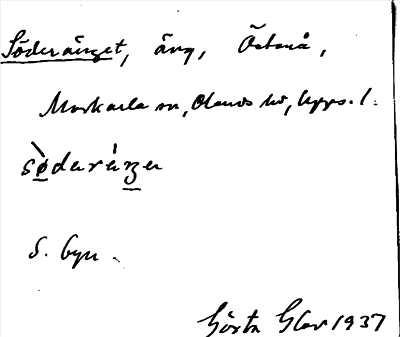 Söderänget, äng, Östanå,
Morkarla sn, Olands hd, Upps. l.
sø̀daráŋɛ
S. byn.
Gösta Olov 1937